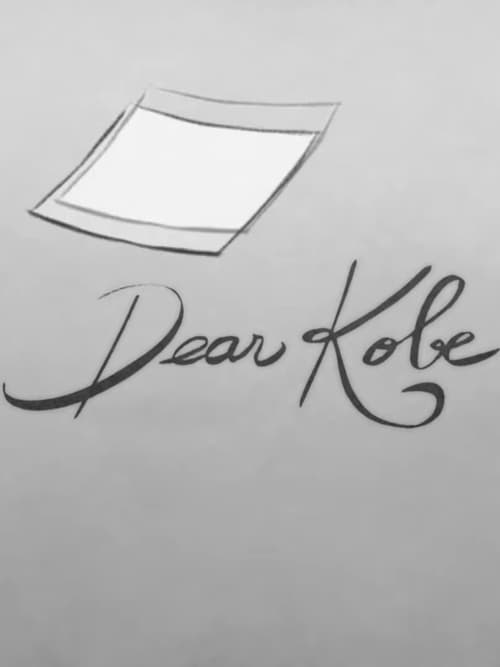 Dear Kobe